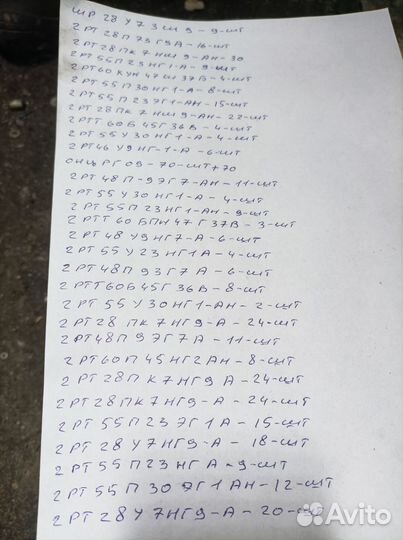 ШР 28 У 7 Э Ш 9 - 9-шт
2 РТ 28П 7Э Г9А - 16-шт
2РТ 28 ПК 7 НШ 9-АН - 30
2РТ 55П 23 НГ1-А - 9-шт
2РТ60 КУН 47 Ш 37В - 4-шт
2РТ 55 П 30 НГ 1-А - 8-шт
2РТ 55 П 23 ЭГ1-АН - 15-шт
2РТ 28 ПК 7 НШ 9-АН - 22-шт
2РТТ 60 Б 45Г 36В - 4-шт
2РТ 55 У 30 НГ 1-А - 4-шт
2РТ46 У9 НГ-1-А - 6-шт
ОНЦ РГ 09 - 70-шт+70
2РТ 48 П-9 ЭГ 7-АН - 11-шт
2РТ 55 У 30 НГ 1-А - 4-шт
2РТ 55П 23 НГ1-АН - 9-шт
2РТТ 60 БПН 47 Г 37В - 3-шт
2РТ 48 У9 НГ7-А - 6-шт
2РТ 55 У 23 НГ1А - 4-шт
2РТ 48П 9ЭГ7А - 6-шт
2РТТ60Б45Г 36В - 8-шт
2РТ 55 У 30 НГ1-АН - 2-шт
2РТ 28 ПК 7 НГ9-А - 24-шт
2РТ48П 9ЭГ7А - 11-шт
2РТ60П 45 НГ2АН - 8-шт
2РТ 28П К7НГ9А - 24-шт
2РТ28ПК7НГ9-А - 24-шт
2РТ 55П23 ЭГ1А - 15-шт
2РТ 28 У7НГ9-А - 18-шт
2РТ 55П23НГ А - 9-шт
2РТ 55 П 30 ЭГ 1 АН - 12-шт
2РТ 28 У 7НГ9-А - 20-шт
Avito